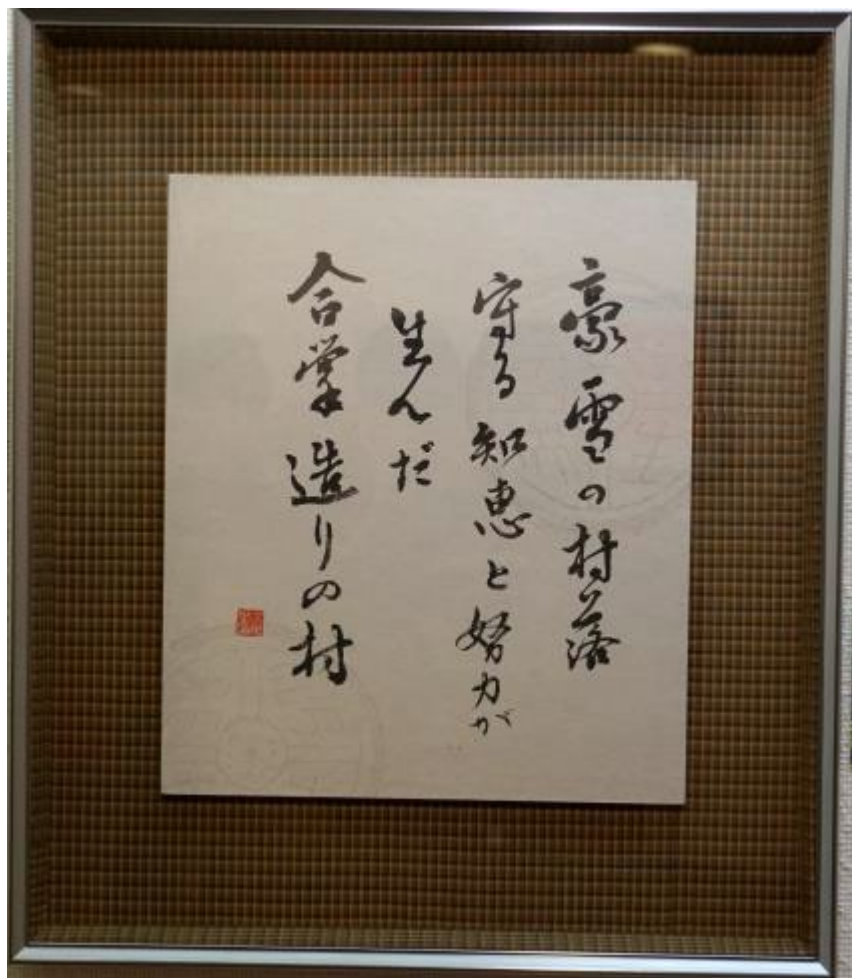 豪雪の村落
守る知恵と努力が
生んだ
合掌造りの村